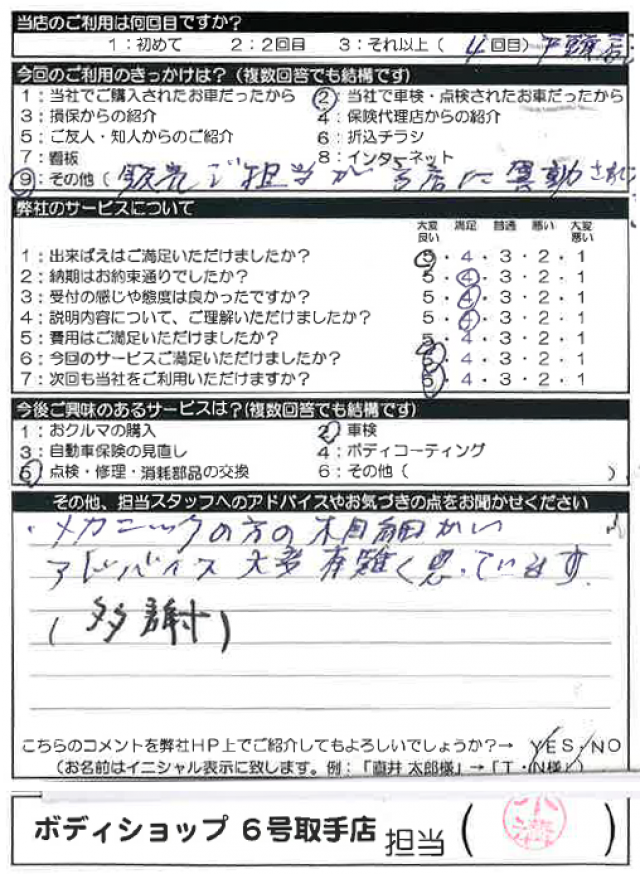 当店のご利用は何回目ですか?
1:初めて 2:2回目 3:それ以上( 4回目)
今回のご利用のきっかけは?(複数回答でも結構です)
1:当社でご購入されたお車だったから 2:当社で車検・点検されたお車だったから
3:損保からの紹介 4:保険代理店からの紹介
5:ご友人・知人からのご紹介 6:折込チラシ
7:看板 8:インターネット
9:その他( 販売ご担当が 店に異動され
弊社のサービスについて
大変良い 満足 普通 悪い 大変悪い
1:出来ばえはご満足いただけましたか? 5・4・3・2・1
2:納期はお約束通りでしたか? 5・4・3・2・1
3:受付の感じや態度は良かったですか? 5・4・3・2・1
4:説明内容について、ご理解いただけましたか? 5・4・3・2・1
5:費用はご満足いただけましたか? 5・4・3・2・1
6:今回のサービスご満足いただけましたか? 5・4・3・2・1
7:次回も当社をご利用いただけますか? 5・4・3・2・1
今後ご興味のあるサービスは?(複数回答でも結構です)
1:おクルマの購入 2:車検
3:自動車保険の見直し 4:ボディコーティング
5:点検・修理・消耗部品の交換 6:その他( )
その他、担当スタッフへのアドバイスやお気づきの点をお聞かせください
・メカニックの方の木目細かい
アドバイス大変有難く思っています。
(多謝)
こちらのコメントを弊社HP上でご紹介してもよろしいでしょうか?→ YES・NO
(お名前はイニシャル表示に致します。例:「直井 太郎様」→「T・N様」)
ボディショップ 6号取手店 担当( )